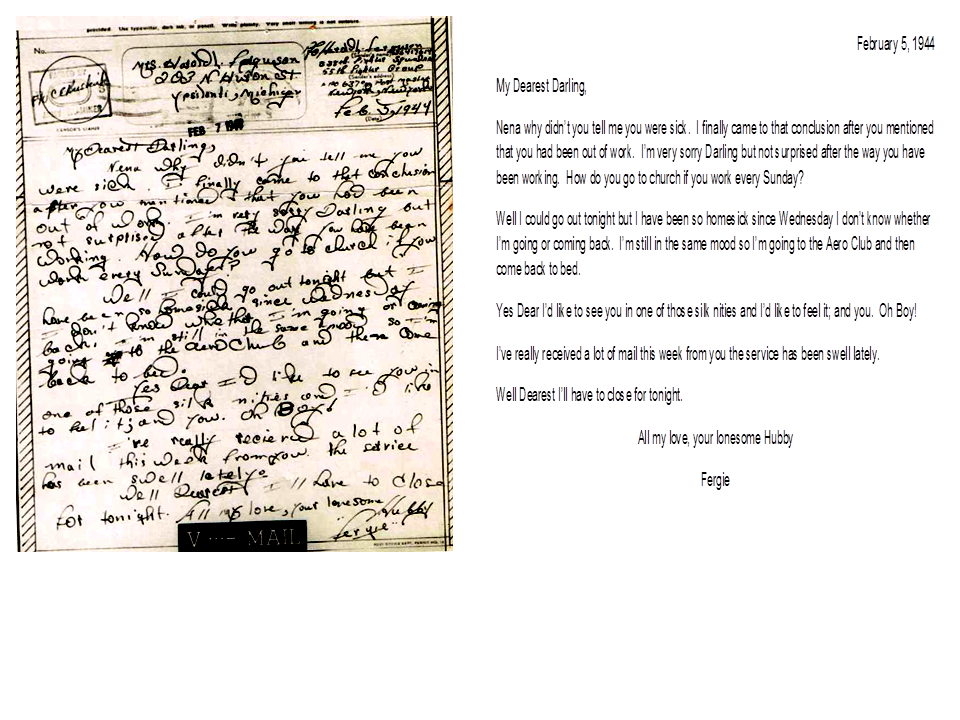 provided. Use typewriter, dark ink, or pencil. Write plainly. Very small writing is not suitable.
No.
Mrs. Harold Ferguson
203 N Huron St
Ypsilanti, Michigan
55th Fighter Group
New York, New York
Feb. 5, 1944
(Date)
(CENSOR'S STAMP)
FEB 7
My Dearest Darling,
Nena why didn't you tell me you
were sick. I finally came to that conclusion
after you mentioned that you had been
out of work. I'm very sorry Darling but
not surprised after the way you have been
working. How do you go to church if you
work every Sunday?
Well I could go out tonight but I
have been so homesick since Wednesday
I don't know whether I'm going or coming
back. I'm still in the same mood so I'm
going to the Aero Club and then come
back to bed.
Yes Dear I'd like to see you in
one of those silk nities and I'd like
to feel it; and you. Oh Boy!
I've really recieved a lot of
mail this week from you. the service
has been swell lately.
Well Dearest I'll have to close
for tonight. All my love, your lonesome Hubby
Fergie
V ···— MAIL
February 5, 1944
My Dearest Darling,
Nena why didn't you tell me you were sick. I finally came to that conclusion after you mentioned
that you had been out of work. I'm very sorry Darling but not surprised after the way you have
been working. How do you go to church if you work every Sunday?
Well I could go out tonight but I have been so homesick since Wednesday I don't know whether
I'm going or coming back. I'm still in the same mood so I'm going to the Aero Club and then
come back to bed.
Yes Dear I'd like to see you in one of those silk nities and I'd like to feel it; and you. Oh Boy!
I've really received a lot of mail this week from you the service has been swell lately.
Well Dearest I'll have to close for tonight.
All my love, your lonesome Hubby
Fergie